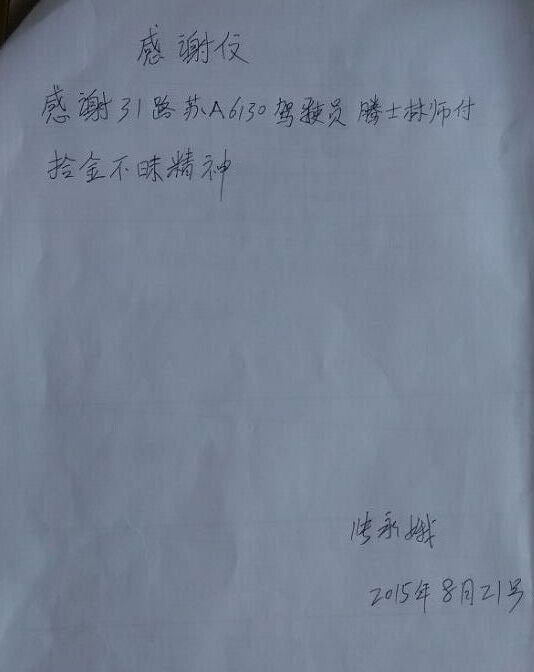 感谢仪
感谢31路苏A6130驾驶员腾士林师付
拾金不昧精神
张永娥
2015年8月21号